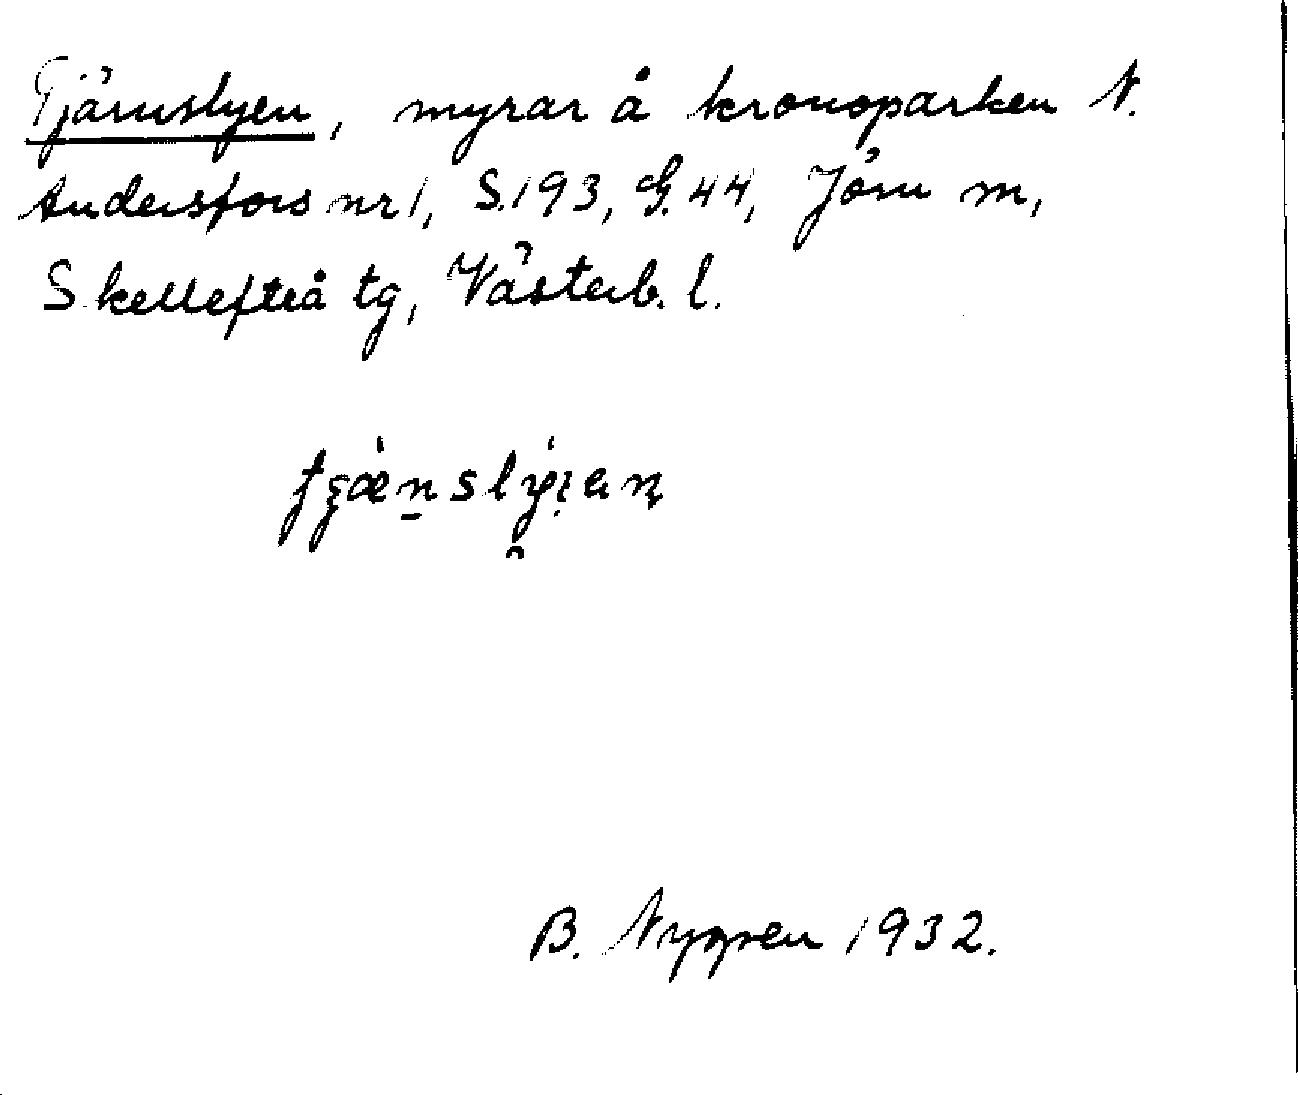 Tjärnslyen, myrar å kronoparken N.
Andersfors nr 1, S.193, G.44, Jörn m,
Skellefteå tg, Västerb. l.
B. Nygren 1932.